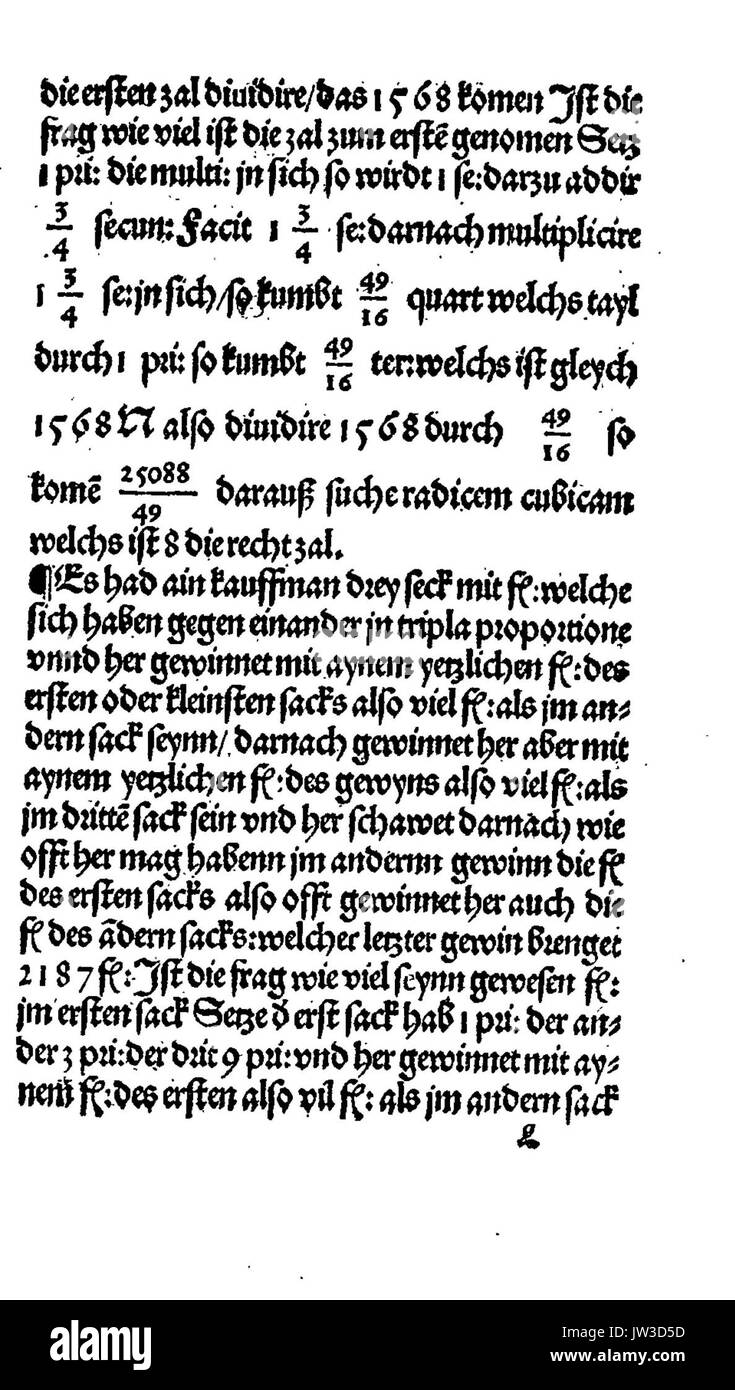 die ersten zal diuidire/das 1568 komen Ist die
frag wie viel ist die zal zum erstē genomen Setz
1 pri: die multi: jn sich so wirdt 1 se:darzu addir
3/4 secun: Facit 1 3/4 se:darnach multiplicire
1 3/4 se:jn sich/so kumbt 49/16 quart welchs tayl
durch 1 pri: so kumbt 49/16 ter:welchs ist gleych
1568 N also diuidire 1568 durch 49/16 so
komē 25088/49 darauß suche radicem cubicam
welchs ist 8 die recht zal.
¶Es had ain kauffman drey seck mit fl:welche
sich haben gegen einander jn tripla proportione
vnnd her gewinnet mit aynem yetzlichen fl:des
ersten oder kleinsten sacks also viel fl:als jm an⸗
dern sack seynn/ darnach gewinnet her aber mit
aynem yetzlichen fl:des gewyns also viel fl:als
jm drittē sack sein vnd her schawet darnach wie
offt her mag habenn jm andernn gewinn die fl
des ersten sacks also offt gewinnet her auch die
fl des ādern sacks:welcher letzter gewin brenget
2187 fl:Ist die frag wie viel seynn gewesen fl:
jm ersten sack Setze d erst sack hab 1 pri: der an⸗
der 3 pri:der drit 9 pri:vnd her gewinnet mit ay⸗
nem fl:des ersten also vil fl: als jm andern sack
alamy
alamy
Image ID: JW3D5D
www.alamy.com